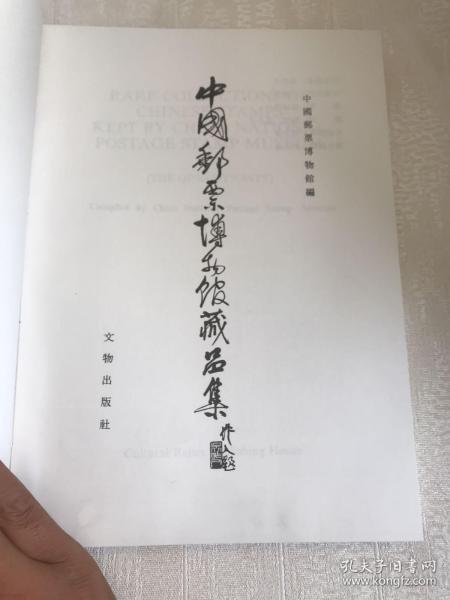 中國郵票博物館編
中國郵票博物館藏品集
作人題
文物出版社
RARE COLLECTION
CHINESE STAMPS
KEPT BY CHINA NATIONAL
POSTAGE STAMP MUSEUM
Compiled by China National Postage Stamp Museum
Cultural Relics Publishing House
孔夫子旧书网
www.kongfz.com